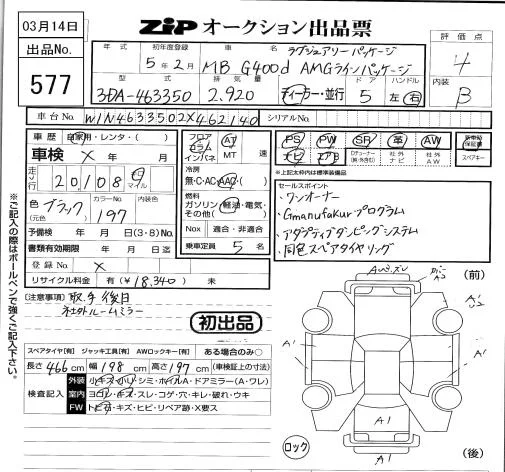 03月14日
ZIP オークション出品票
出品No.
577
評価点
4
内装
B
年式 初年度登録 車名 ラグジュアリーパッケージ
5年2月 MB G400d AMGラインパッケージ
型式 排気量 ドア ハンドル
3DA-463350 2.920 ディーラー・並行 5 左 右
車台No. W1N4633502X462140 シリアルNo.
車歴 自家用・レンタ・
車検 × 年 月
走行 20,108 km マイル
色 ブラック カラーNo. 197 内装色
(元色)
予備検 年 月 日(3・8)No.
書類有効期限 年 月 日迄
登録No. ×
リサイクル料金 有(¥18,340) 未
フロア コラム インパネ AT MT 速
冷房
無・C・AC・AAC( )
燃料
ガソリン・軽油・電気・その他( )
Nox 適合・非適合
乗車定員 5名
PS PW SR 革 AW 新車時保証書
ナビ エアB 社外ナビ 社外AW スペアキー
※上記太枠内は標準装備品
セールスポイント
・ワンオーナー
・Gmanufakturプログラム
・アダプティブダンピングシステム
・同色スペアタイヤリング
(注意事項) 取手後日
社外ルームミラー
初出品
スペアタイヤ[有] ジャッキ工具[有] AWロックキー[有] ある場合のみ○
長さ 466 cm 幅 198 cm 高さ 197 cm (車検証上の寸法)
検査記入
外装 小キズ・小凹・シミ・ホイルA・ドアミラー(A・ワレ)
室内 ヨゴレ・キズ・スレ・コゲ・穴・キレ・破れ・ウキ
FW トビ石・キズ・ヒビ・リペア跡・X要ス
※ご記入の際はボールペンで強くご記入下さい。
(前)
A'
A'
A'
A1
A1
ロック
(後)